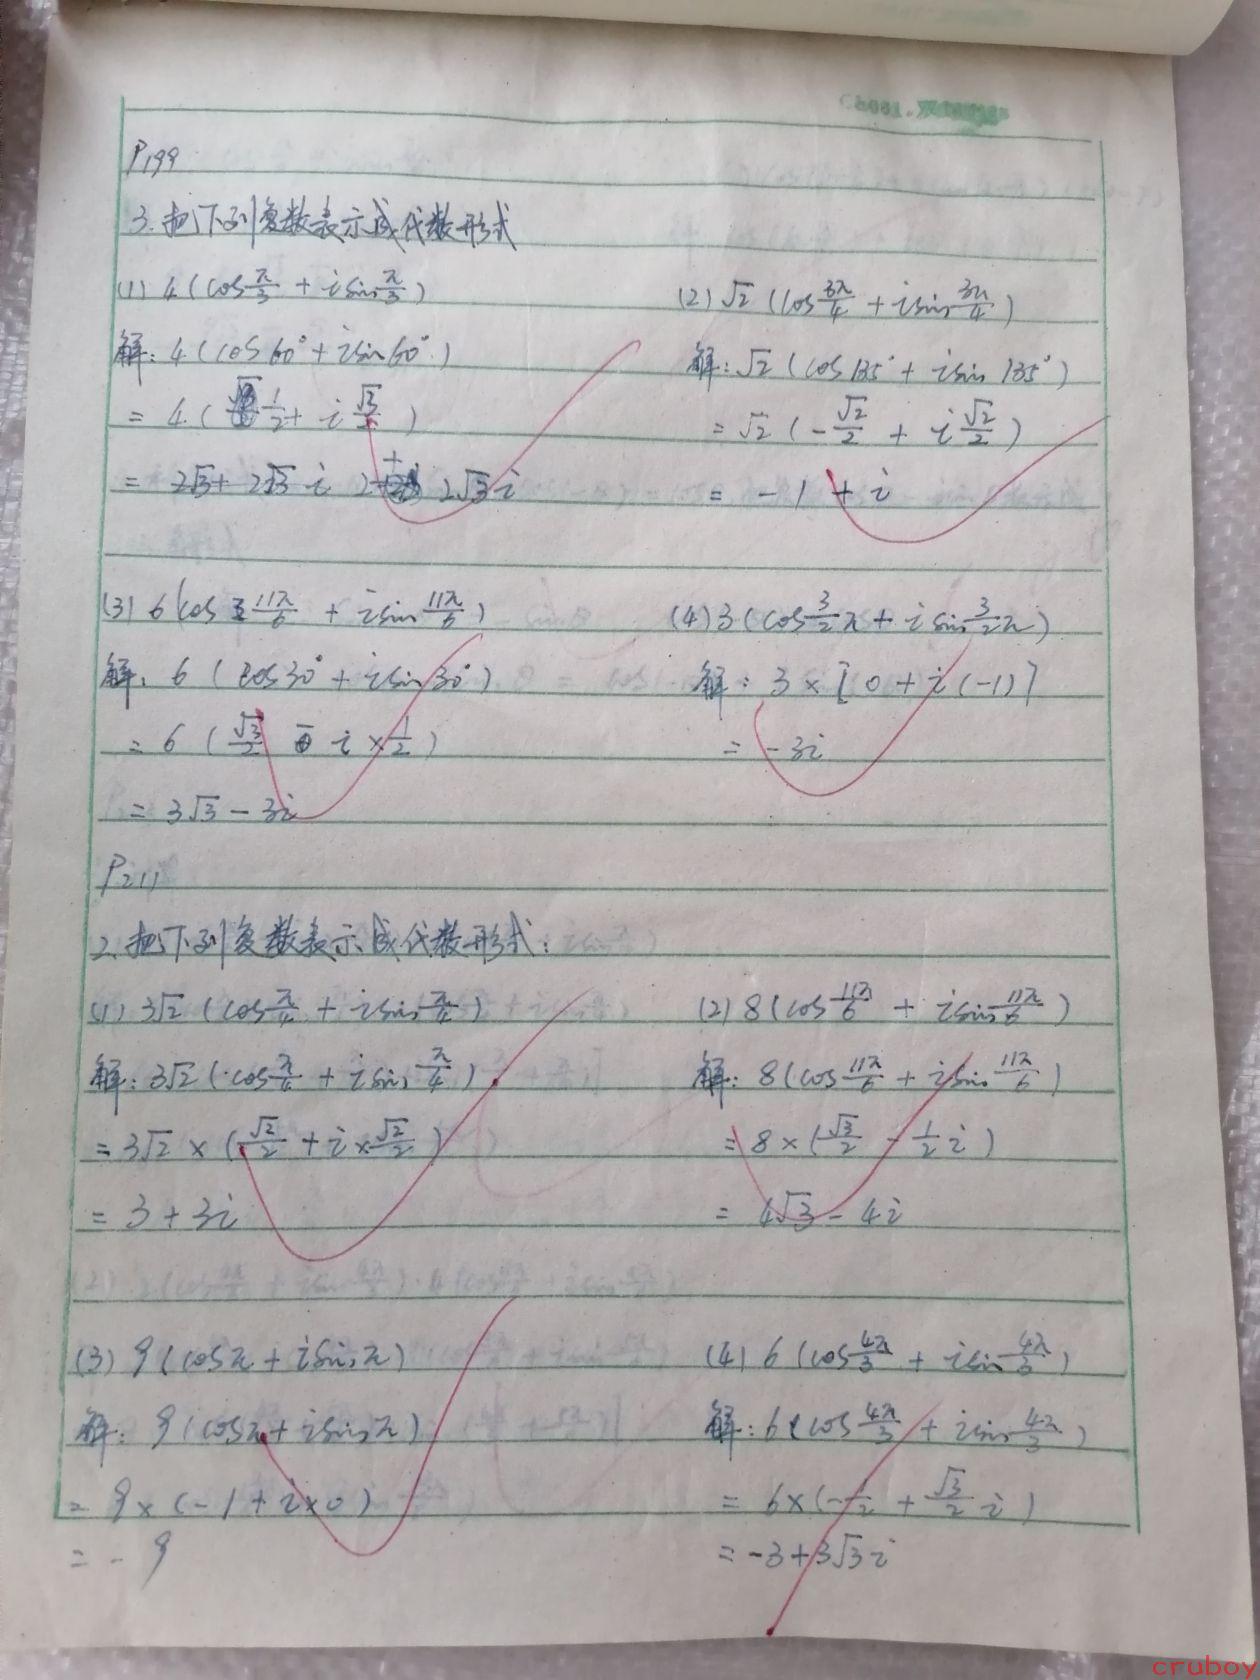 P199
3.把下列复数表示成代数形式
(1) 4(cosπ/3 + isinπ/3)
解: 4(cos60°+isin60°)
= 4( 1/2+ i √3/2 )
= 2√3+ 2√3 i 2 + 2√3i
(2) √2 (cos3π/4 + isin3π/4)
解: √2 (cos135° + isin 135°)
= √2 (-√2/2 + i √2/2)
= -1 + i
(3) 6(cos 11π/6 + isin 11π/6)
解: 6 (cos30° + isin30°)
= 6 (√3/2 - i×1/2)
= 3√3 - 3i
(4) 3(cos3/2π + isin3/2π)
解: 3×[0 + i(-1)]
= -3i
P211
2.把下列复数表示成代数形式:
(1) 3√2 (cosπ/4 + isinπ/4)
解: 3√2 (cosπ/4 + isinπ/4)
= 3√2 × (√2/2 + i×√2/2)
= 3 + 3i
(2) 8(cos11π/6 + isin11π/6)
解: 8(cos11π/6 + isin11π/6)
= 8×(√3/2 - 1/2 i)
= 4√3 - 4i
(3) 9(cosπ + isinπ)
解: 9(cosπ + isinπ)
= 9×(-1 + i×0)
= -9
(4) 6(cos4π/3 + isin4π/3)
解: 6(cos4π/3 + isin4π/3)
= 6×(-1/2 + √3/2 i)
= -3+3√3i
cruboy